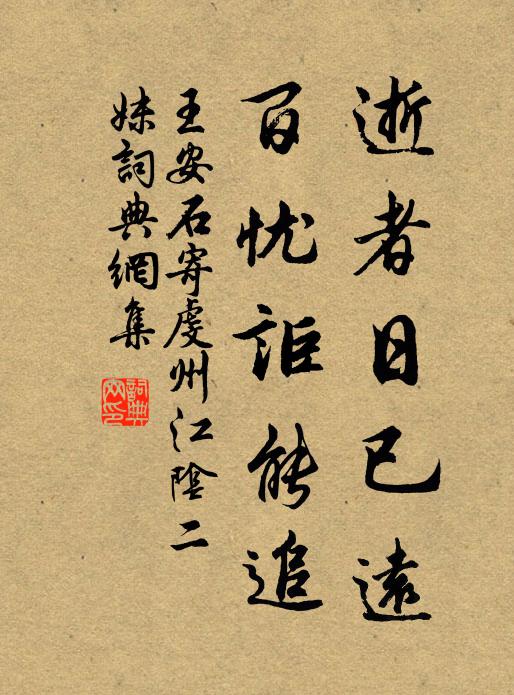 逝者日已遠
百忧詎能追
王安石寄虔州江陰二
妹詞典網集
詞典網印